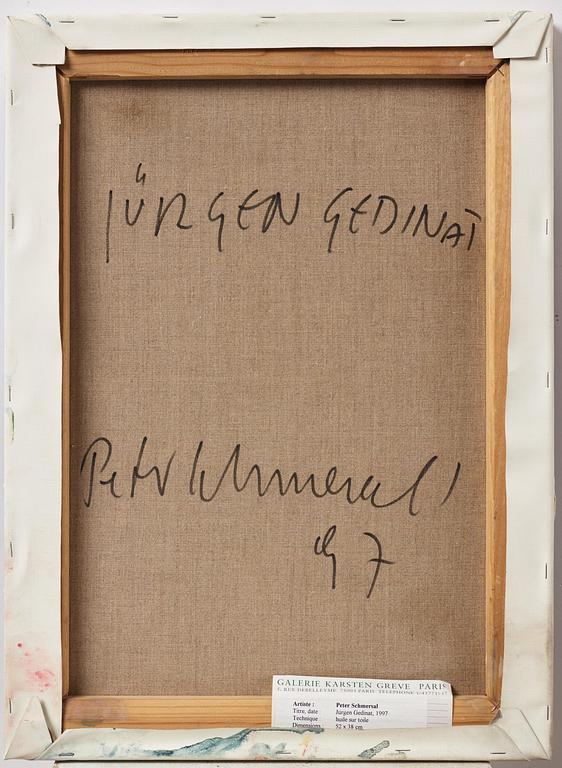 JÜRGEN GEDINAT
Peter Schmersal
97
GALERIE KARSTEN GREVE PARIS
5, RUE DEBELLEYME 75003 PARIS TELEPHONE
Artiste : Peter Schmersal
Titre, date Jurgen Gedinat, 1997
Technique huile sur toile
Dimensions 52 x 38 cm